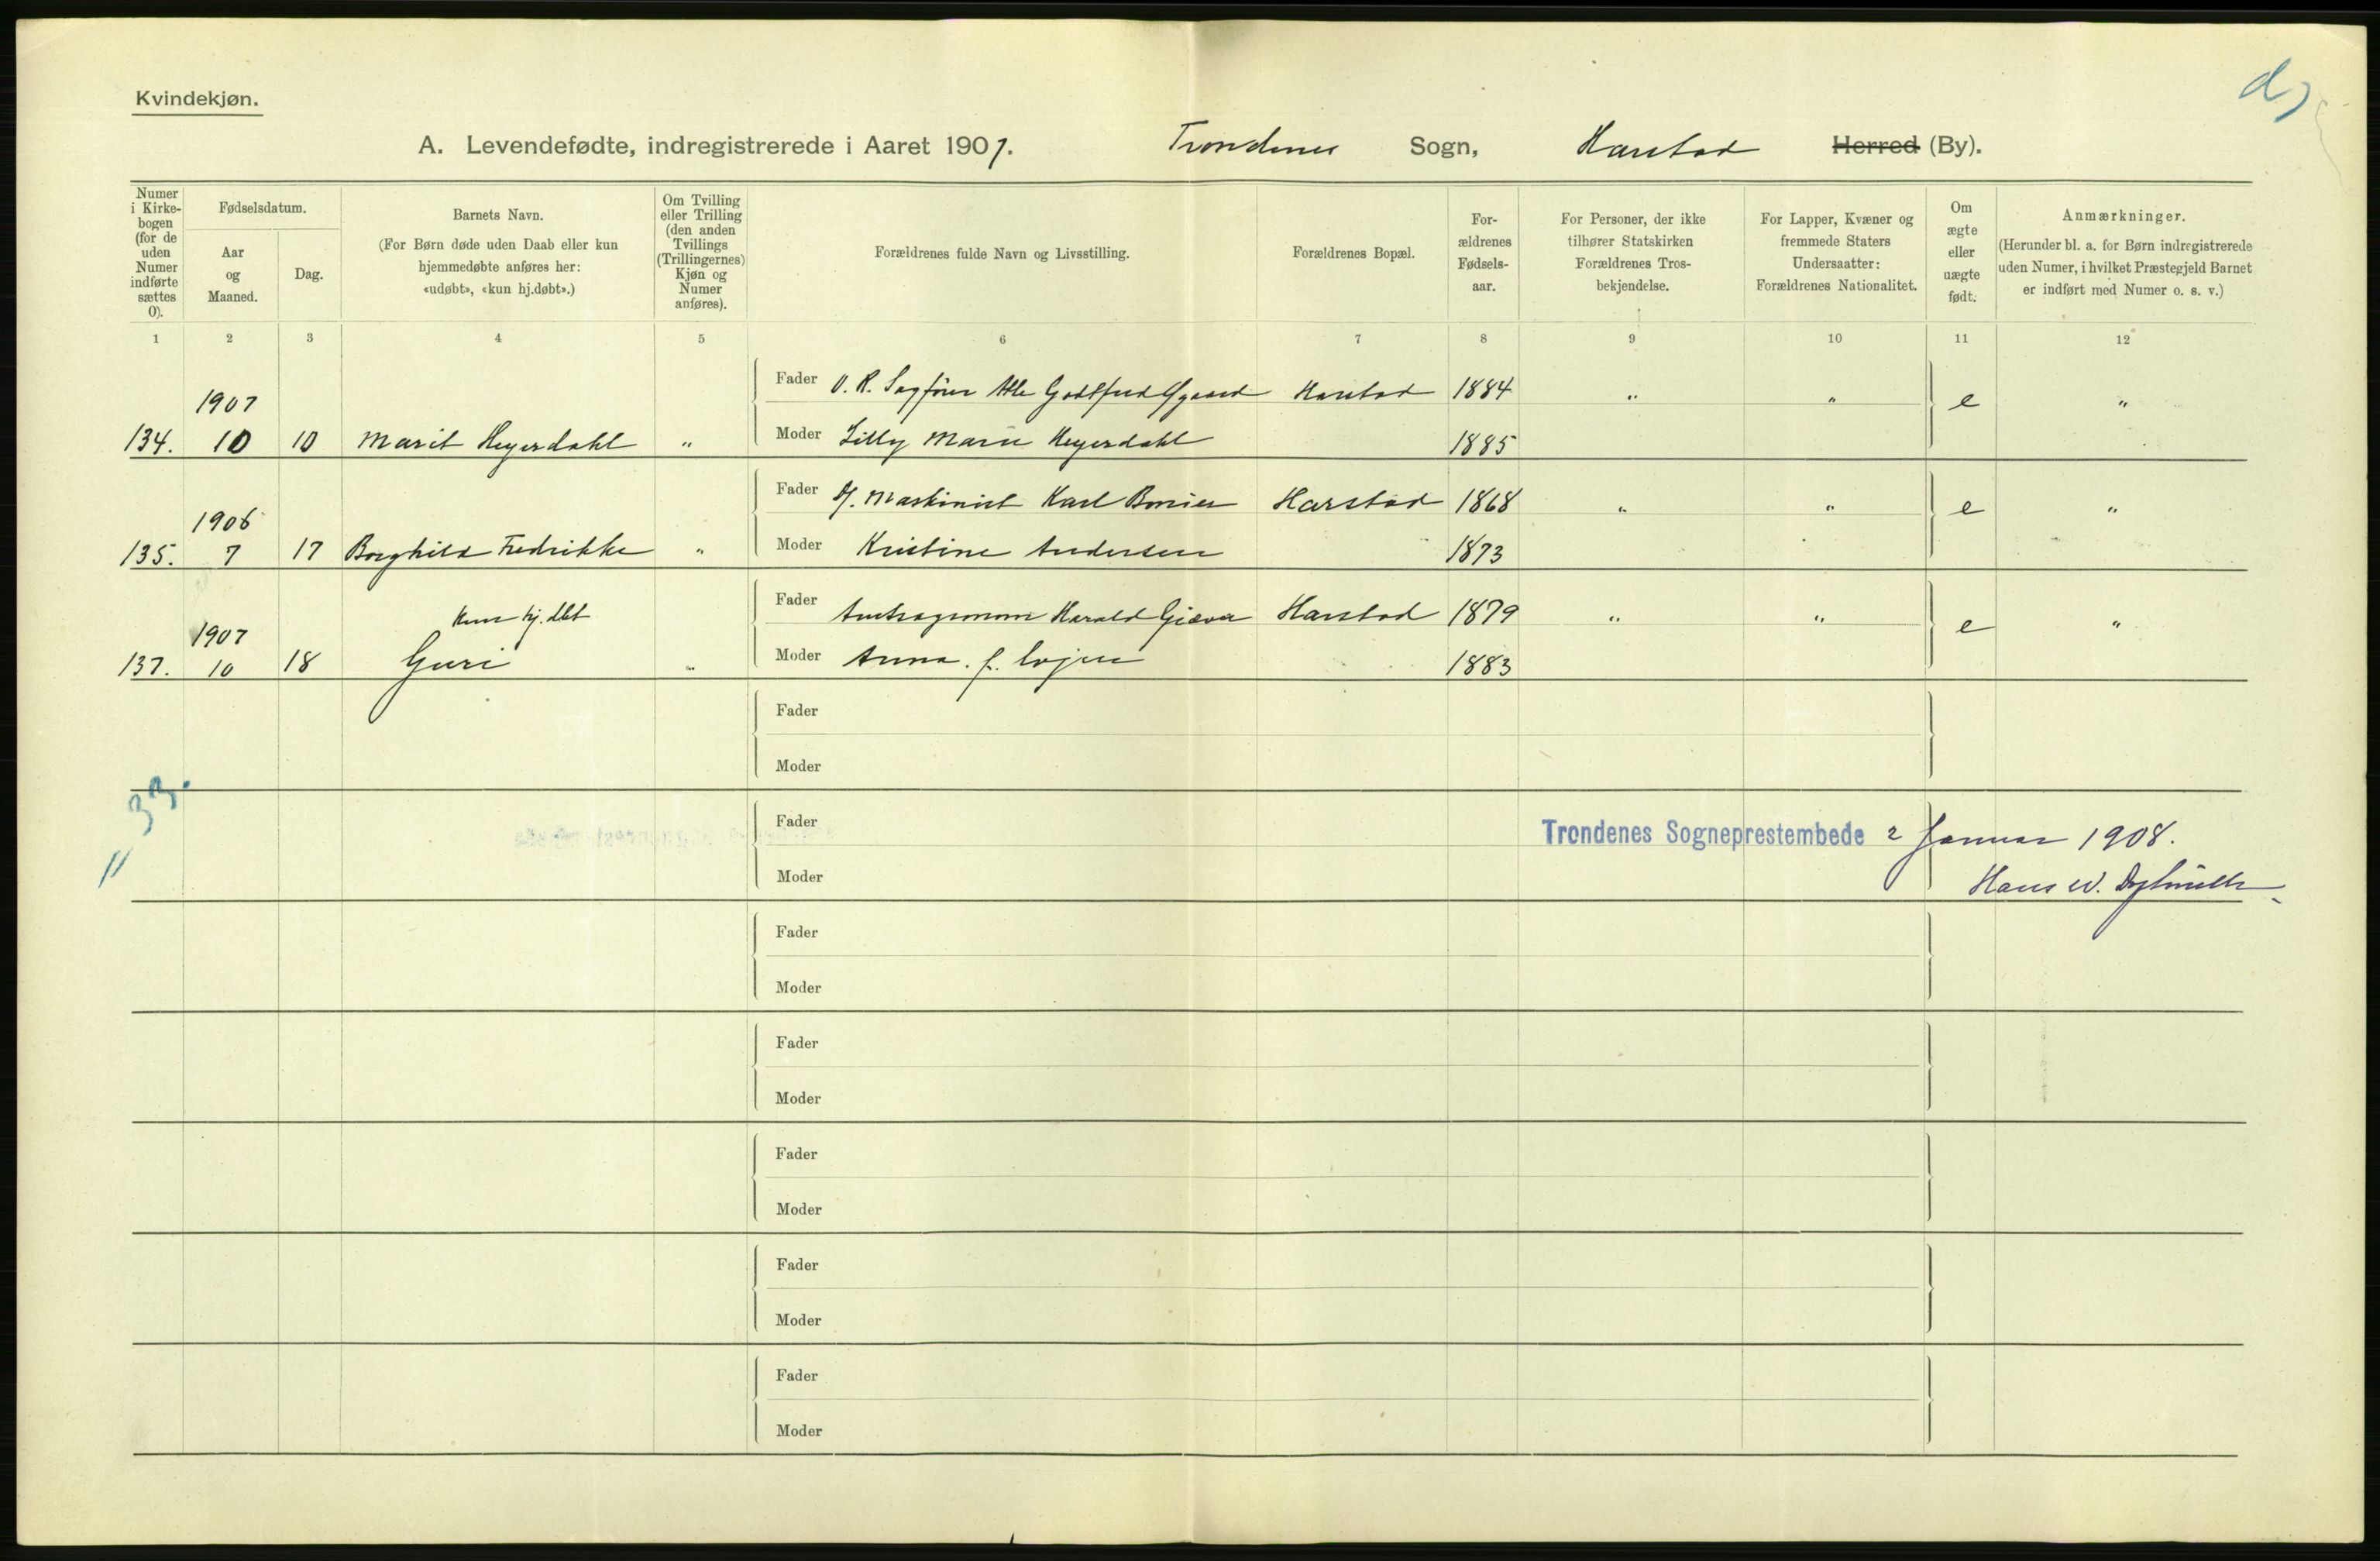 d)
Kvindekjøn.
A. Levendefødte, indregistrerede i Aaret 1907. Trondenes Sogn, Harstad Herred (By).
Numer i Kirkebogen (for de uden Numer indførte sættes 0).
Fødselsdatum.
Aar og Maaned.
Dag.
Barnets Navn.
(For Børn døde uden Daab eller kun hjemmedøbte anføres her: «udøbt», «kun hj.døbt».)
Om Tvilling eller Trilling (den anden Tvillings (Trillingernes) Kjøn og Numer anføres).
Forældrenes fulde Navn og Livsstilling.
Forældrenes Bopæl.
For-ældrenes Fødsels-aar.
For Personer, der ikke tilhører Statskirken Forældrenes Tros-bekjendelse.
For Lapper, Kvæner og fremmede Staters Undersaatter: Forældrenes Nationalitet.
Om ægte eller uægte født.
Anmærkninger.
(Herunder bl. a. for Børn indregistrerede uden Numer, i hvilket Præstegjeld Barnet er indført med Numer o. s. v.)
1 2 3 4 5 6 7 8 9 10 11 12
Fader O. R. Sagfører Atle Godtfred Harstad 1884 " " e "
1907
134. 10 10 Marit Heyerdahl " Moder Lilly Marie Heyerdahl 1885
Fader Maskinist Karl Harstad 1868 " " e "
1906
135. 7 17 Borghild Fredrikke " Moder Kristine Andersen 1873
Fader Harald Giæver Harstad 1879 " " e "
Kun hj. dbt
1907
137. 10 18 Guri " Moder Anna f. 1883
Fader
Moder
33.
Fader
Trondenes Sogneprestembede 2 Januar 1908.
Moder
Hans W.
11
Fader
Moder
Fader
Moder
Fader
Moder
Fader
Moder
Fader
Moder